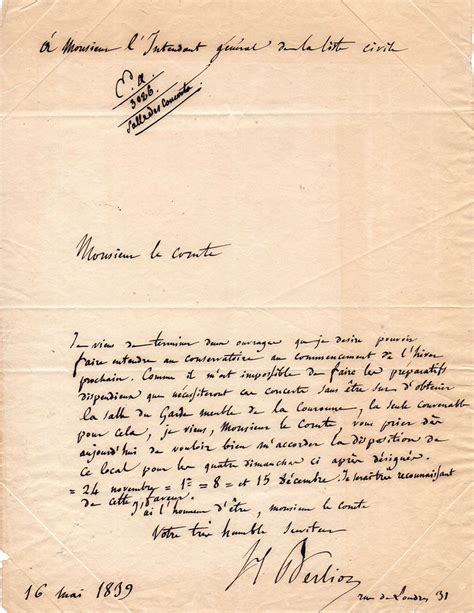 À Monsieur l'Intendant général de la liste civile
C. A.
3026
Salle des Concerts
Monsieur le comte
Je viens de terminer deux ouvrages que je desire pouvoir
faire entendre au conservatoire au commencement de l'hiver
prochain. Comme il m'est impossible de faire les préparatifs
dispendieux que nécessiteront ces concerts sans être sur d'obtenir
la salle du Garde meuble de la Couronne, la seule convenable
pour cela, je viens, Monsieur le Comte, vous prier dès
aujourd'hui de vouloir bien m'accorder la disposition de
ce local pour les quatre dimanches ci après désignés.
= 24 novembre = 1er = 8 = et 15 Décembre. Je serai très reconnaissant
de cette faveur.
J'ai l'honneur d'être, monsieur le comte
Votre très humble Serviteur
H Berlioz
16 mai 1839
rue de Londres 31